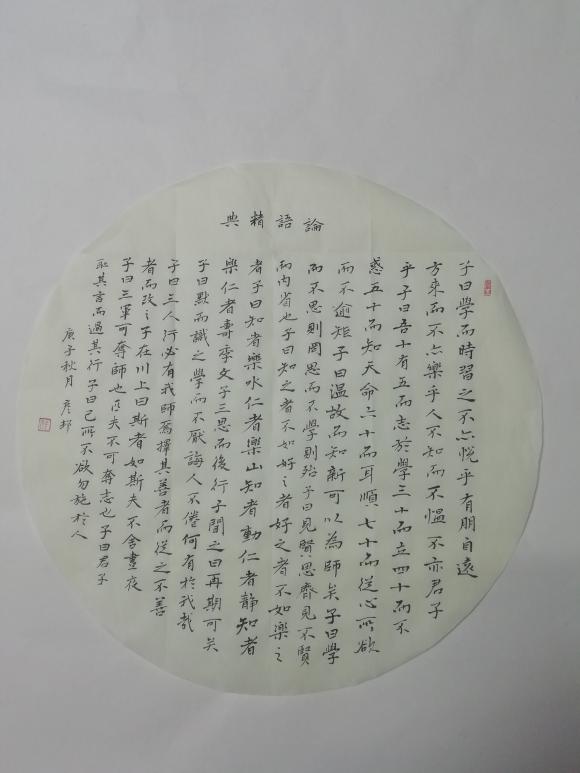 論語精典
子曰學而時習之不亦悅乎有朋自遠
方來而不亦樂乎人不知而不愠不亦君子
乎子曰吾十有五而志於學三十而立四十而不
惑五十而知天命六十而耳順七十而從心所欲
而不逾矩子曰温故而知新可以為師矣子曰學
而不思則罔思而不學則殆子曰見賢思齊見不賢
而内省也子曰知之者不如好之者好之者不如樂之
者子曰知者樂水仁者樂山知者動仁者静知者
樂仁者壽季文子三思而後行子聞之曰再期可矣
子曰默而識之學而不厭誨人不倦何有於我哉
子曰三人行必有我師焉擇其善者而從之不善
者而改之子在川上曰斯者如斯夫不舍晝夜
子曰三軍可奪師也匹夫不可奪志也子曰君子
恥其言而過其行子曰己所不欲勿施於人
庚子秋月彦邦